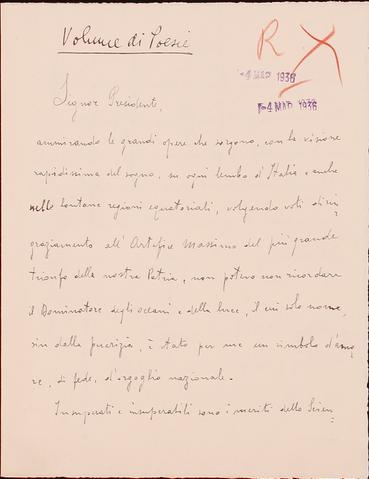 Volume di Poesie
R X
-4 MAR 1936
-4 MAR 1936
Signor Presidente,
ammirando le grandi opere che sorgono, con la visione
rapidissima del sogno, su ogni lembo d'Italia e anche
nelle lontane regioni equatoriali, volgendo voti di rin¬
graziamento all'Artefice Massimo del più grande
trionfo della nostra Patria, non potevo non ricordare
il Dominatore degli oceani e della luce, il cui solo nome,
sin dalla puerizia, è stato per me un simbolo d'amo¬
re, di fede, d'orgoglio nazionale.
Insuperati e insuperabili sono i meriti dello Scien¬